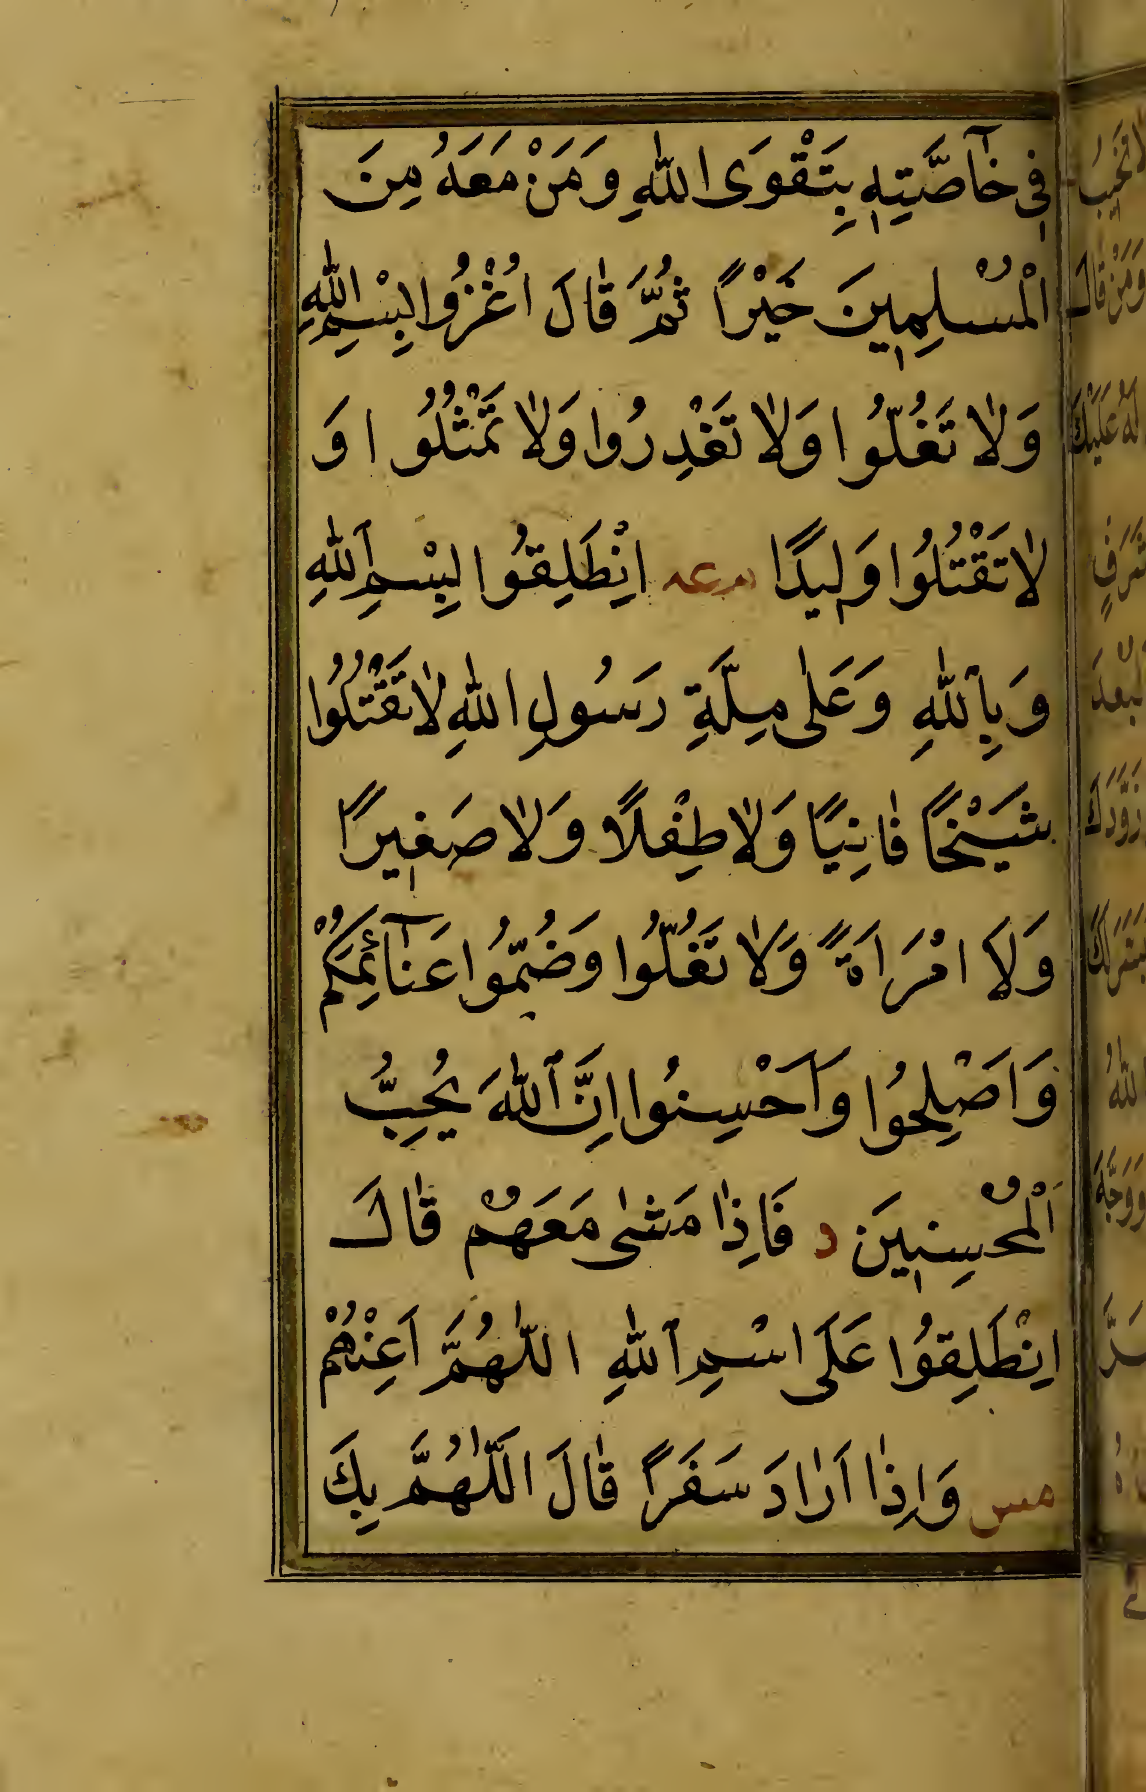 فِي خَآصَّتِهِ بِتَقْوَى اللّٰهِ وَمَنْ مَعَهُ مِنَ
الْمُسْلِمِينَ خَيْرًا ثُمَّ قَالَ اُغْزُوا بِسْمِ اللّٰهِ
وَلَا تَغُلُّوا وَلَا تَغْدِرُوا وَلَا تَمْثُلُوا وَ
لَا تَقْتُلُوا وَلِيدًا م عه اِنْطَلِقُوا بِسْمِ اللّٰهِ
وَبِاللّٰهِ وَعَلٰى مِلَّةِ رَسُولِ اللّٰهِ لَا تَقْتُلُوا
شَيْخًا فَانِيًا وَلَا طِفْلًا وَلَا صَغِيرًا
وَلَا امْرَاَةً وَلَا تَغُلُّوا وَضُمُّوا غَنَآئِمَكُمْ
وَاَصْلِحُوا وَاَحْسِنُوا اِنَّ اللّٰهَ يُحِبُّ
الْمُحْسِنِينَ د فَاِذَا مَشٰى مَعَهُمْ قَالَ
اِنْطَلِقُوا عَلَى اسْمِ اللّٰهِ اللّٰهُمَّ اَعِنْهُمْ
مس وَاِذَا اَرَادَ سَفَرًا قَالَ اَللّٰهُمَّ بِكَ